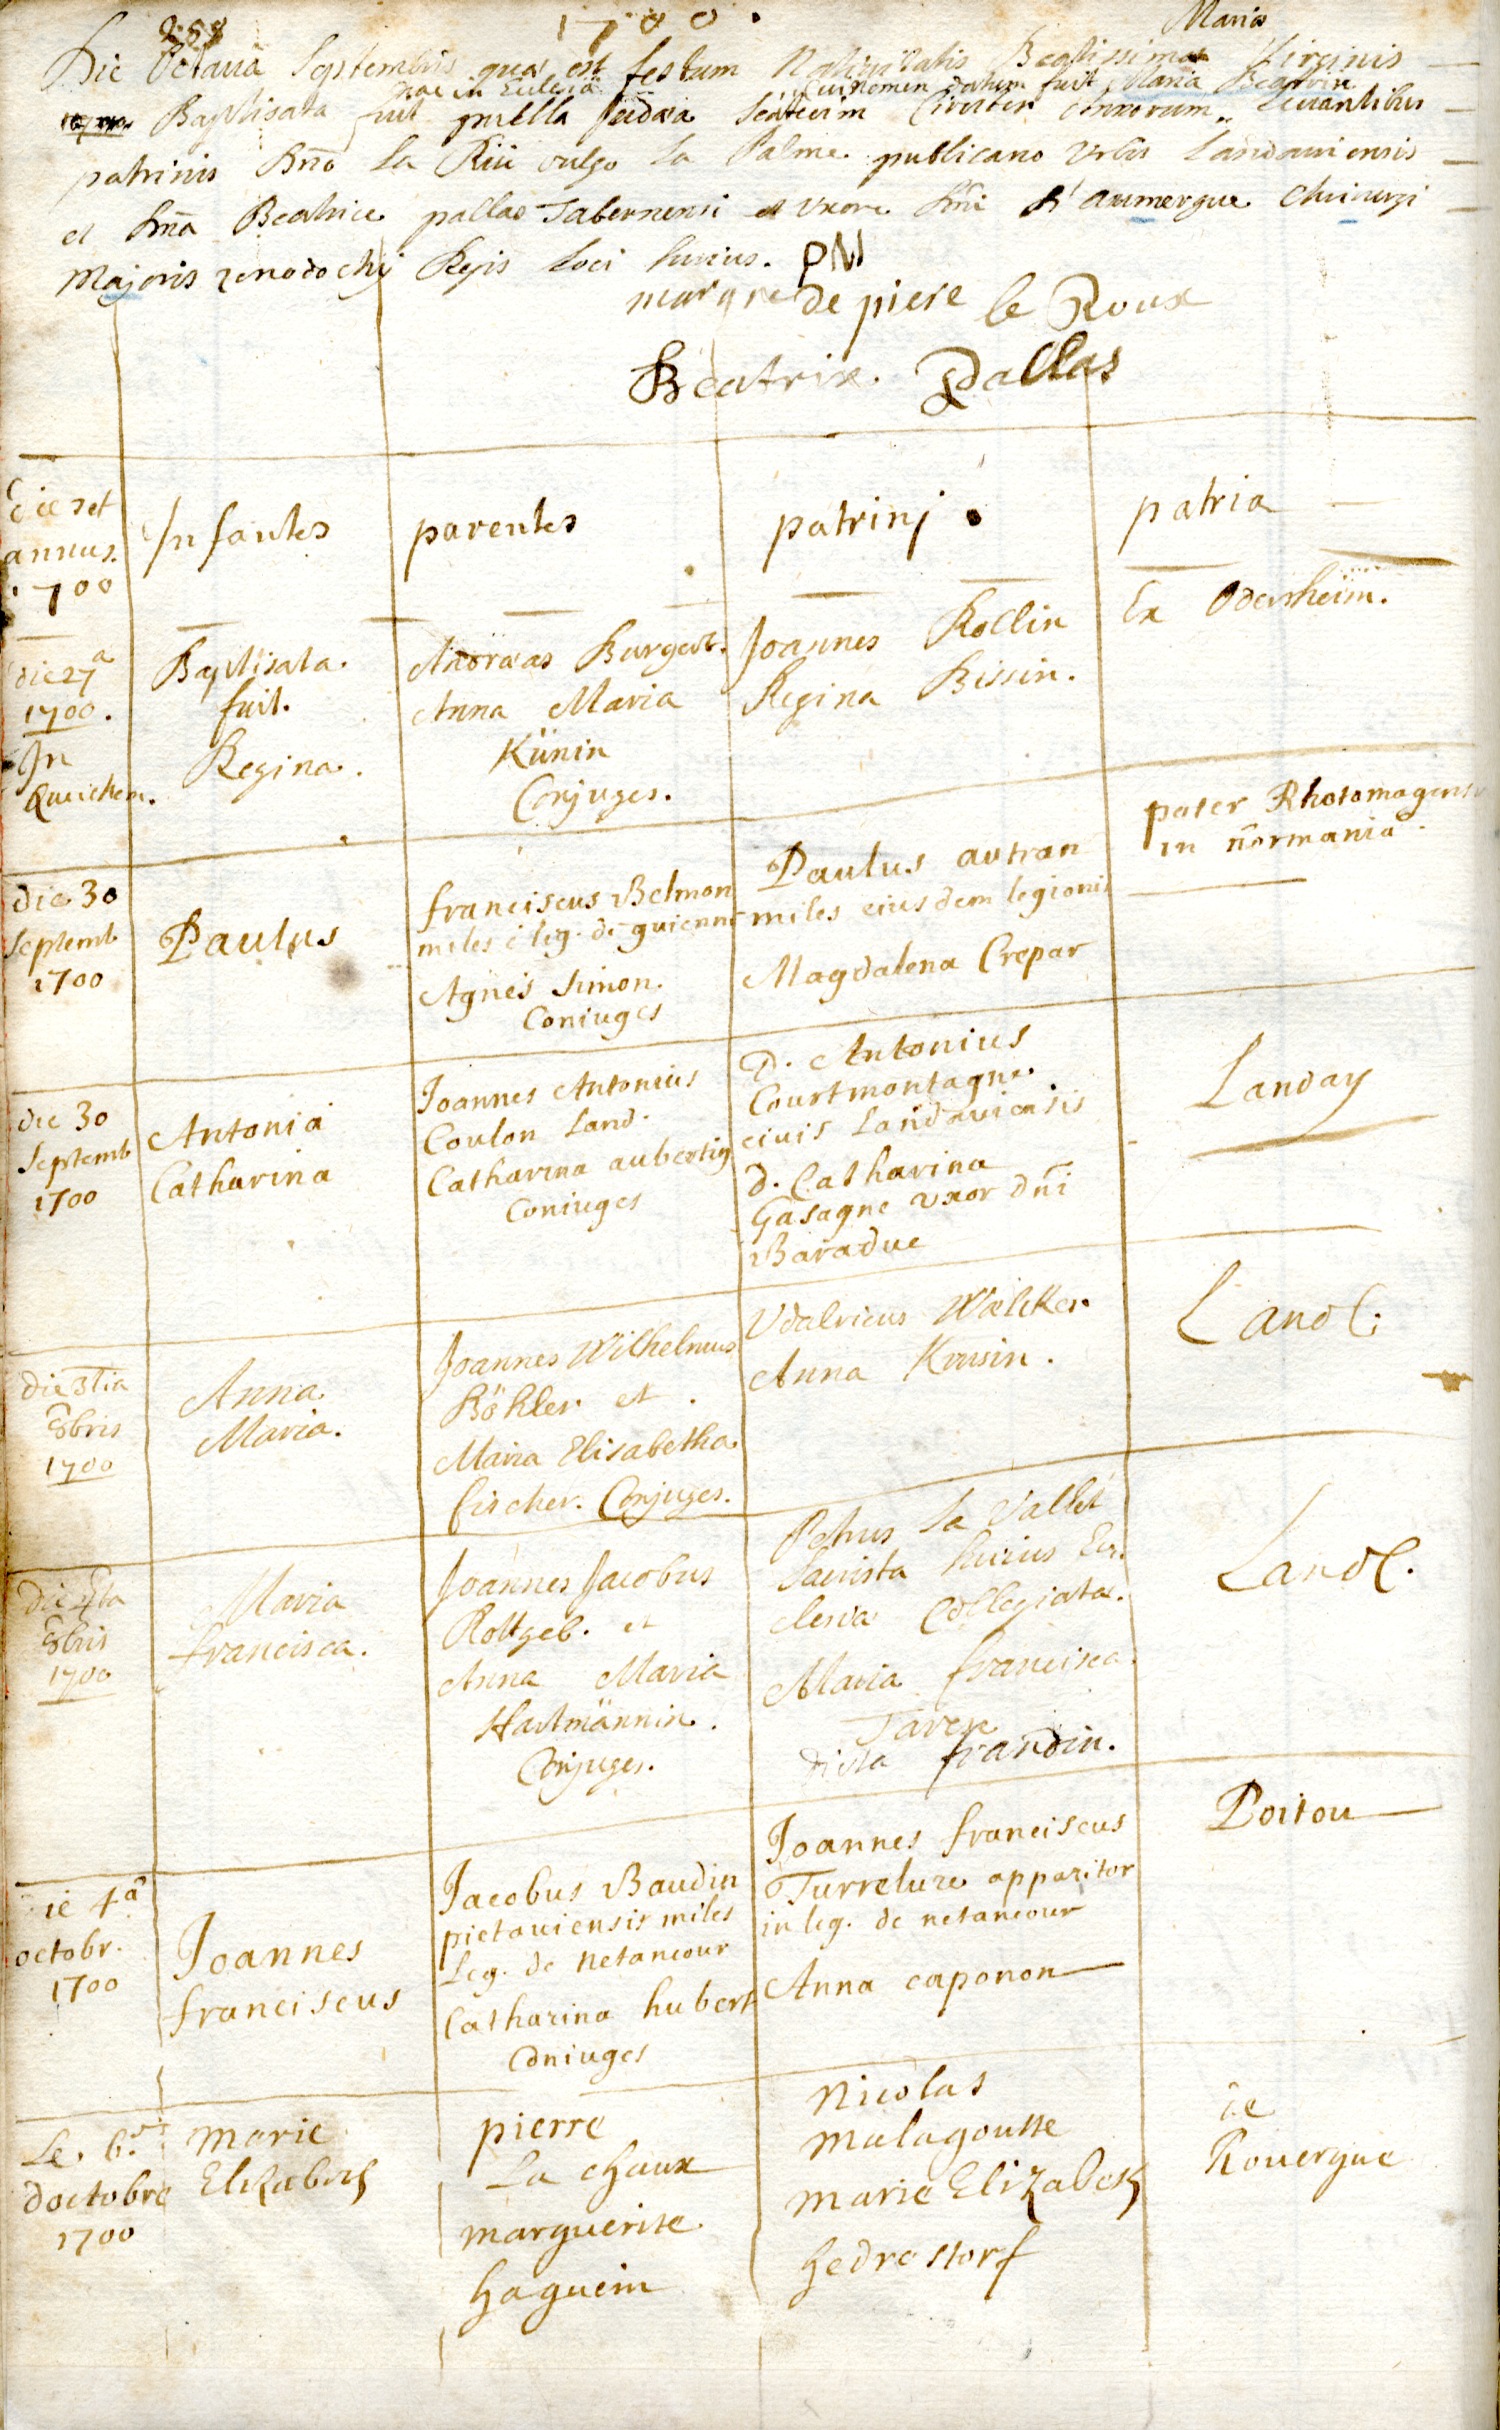 288
1700.
Maria
Die Octava Septembris quae est festum Nativitatis Beatissimae Virginis
hac in Eclesia cui nomen datum fuit Maria Beatrix
Baptisata fuit puella Judaea sedecim Circiter annorum. Levantibus
patrinis Dno La Riü vulgo La Palme publicano Urbis Landaviensis
et Dna Beatrice pallas Tabernensi et Uxore Dni D'aumergue Chirurgi
Majoris xenodochij Regis Loci hujus. PM
marque de piere le Roux
Beatrix Pallas
dies et
annus.
1700
Infantes
parentes
patrinj
patria
die 27a
1700.
In
Queichem.
Baptisata
fuit.
Regina.
Andraeas Burgert.
Anna Maria
Künin
Conjuges.
Joannes Rollin
Regina Bissin.
Ex Odersheim.
die 30
septemb
1700
Paulus
franciscus Belmon
miles é leg. de guienne
Agnes Simon.
Coniuges
Paulus autran
miles eiusdem legionis
Magdalena Crepar
pater Rhotomagensis
in normania
die 30
septemb
1700
Antonia
Catharina
Joannes Antonius
Coulon Land.
Catharina aubertin
Coniuges
D. Antonius
Courtmontagne
ciuis Landauiensis
d. Catharina
Gasagne uxor dni
Baradue
Landay
die 3tia
8bris
1700
Anna
Maria.
Joannes Wilhelmus
Böhler et
Maria Elisabetha
fischer. Conjuges.
Udalricus Wölcker
Anna Krusin.
Land.
die 4ta
8bris
1700
Maria
francisca.
Joannes Jacobus
Rottgeb. et
Anna Maria
Hartmännin.
Conjuges.
Petrus La Vallet
Sacrista huius Ec-
clesiae Collegiatae.
Maria francisca
Taren
dicta frandin.
Land.
die 4a
octobr.
1700
Joannes
franciscus
Jacobus Baudin
pictauiensis miles
Leg. de Netancour
Catharina hubert
Coniuges
Joannes franciscus
Turrelure apparitor
in leg. de netancour
Anna caponon
Poitou
Le. 6.e
doctobre
1700
Marie
Elizabeth
pierre
La chaux
marguerite
haguein
Nicolas
malagoutte
Marie Elizabeth
hedrestorf
de
Rouergue